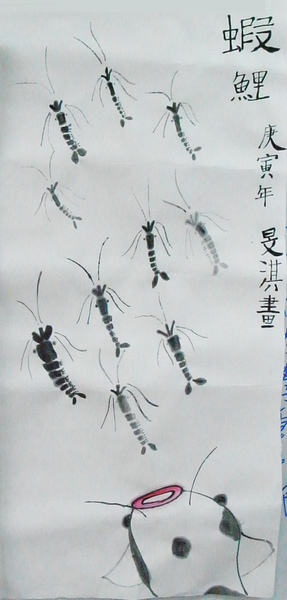 蝦鯉
庚寅年
旻淇畫